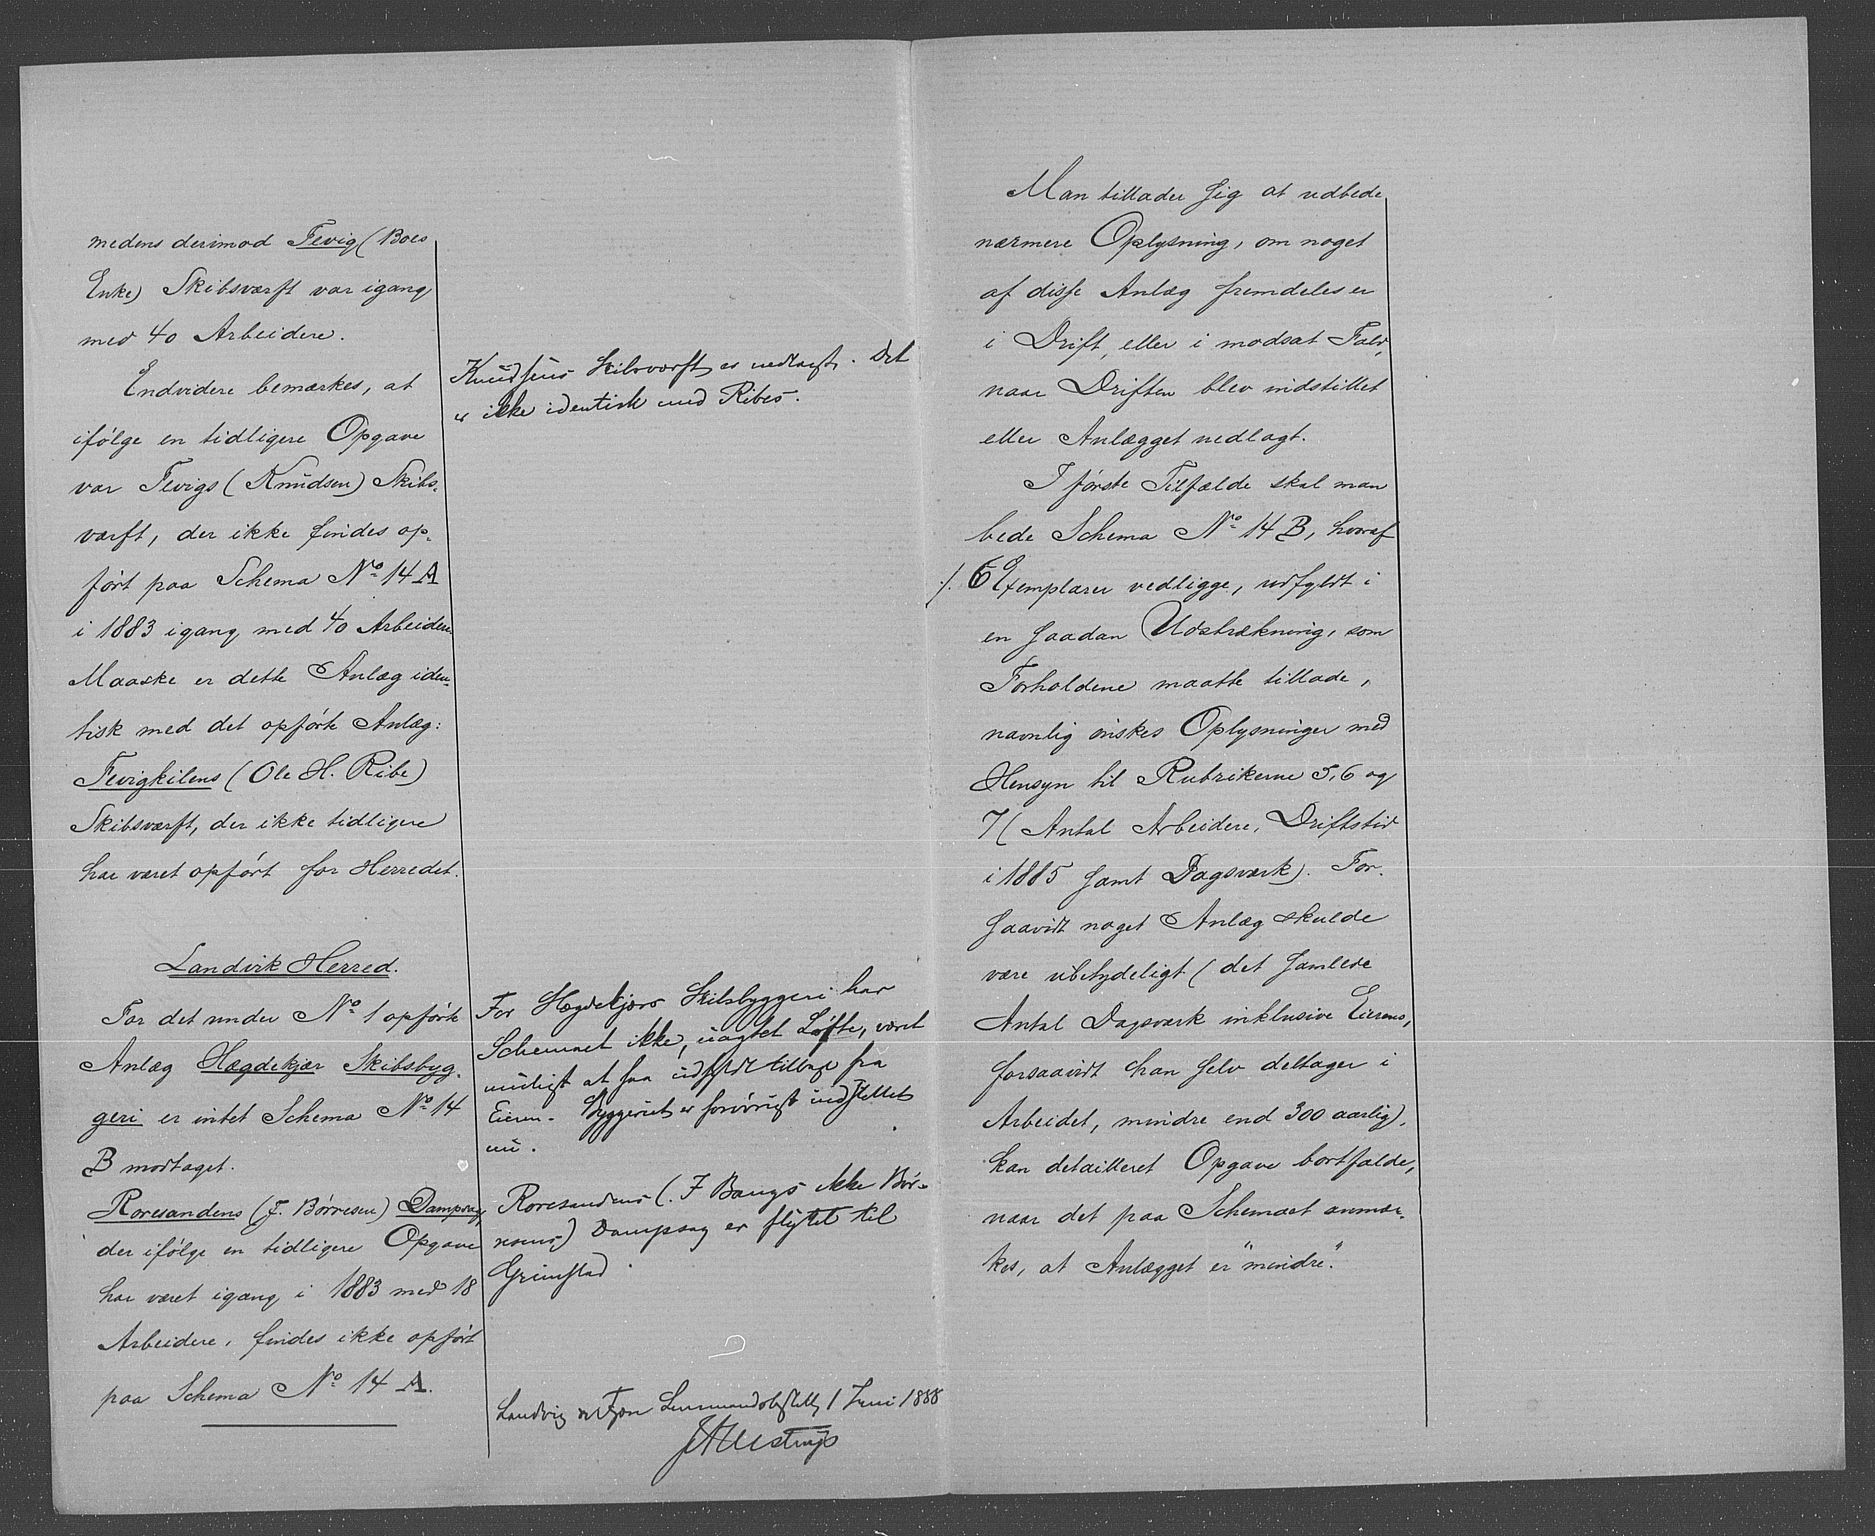 medens derimod Fevig (Boes
Enke) Skibsværft var igang
med 40 Arbeidere.
Endvidere bemærkes, at
ifölge en tidligere Opgave
var Fevigs (Knudsen) Skibs-
værft, der ikke findes op-
fört paa Schema No 14 A
i 1883 igang med 40 Arbeidere
Maaske er dette Anlæg iden-
tisk med det opförte Anlæg:
Fevigkilens (Ole H. Ribe)
Skibsværft, der ikke tidligere
har været opfört for Herredet.
Knudsens Skibsværft er nedlagt. Det
er ikke identisk med Ribes.
Landvik Herred.
For det under No 1 opförte
Anlæg Hægdekjær Skibsbyg-
geri er intet Schema No 14
B modtaget.
Roresandens (J. Börresen) Dampsag,
der ifölge en tidligere Opgave
har været igang i 1883 med 18
Arbeidere, findes ikke opfört
paa Schema No 14 A.
For Hægdekjærs Skibsbyggeri har
Schemaet ikke, uagtet Löfte, været
muligt at faa udfyldt tilbage fra
Eieren. Byggeriet er forövrigt indstillet
nu.
Roresandens (J Bangs ikke Bör-
resens) Dampsag er flyttet til
Grimstad.
Landvig Lensmandsbestilling 1 Juni 1888
Man tillader sig at udbede
nærmere Oplysning, om noget
af disse Anlæg fremdeles er
i Drift, eller i modsat Fald,
naar Driften blev indstillet
eller Anlægget nedlagt.
I förste Tilfælde skal man
bede Schema No 14 B, hvoraf
./. 6 Exemplarer vedligge, udfyldt i
en saadan Udstrækning, som
Forholdene maatte tillade,
navnlig önskes Oplysninger med
Hensyn til Rubrikerne 5, 6 og
7 (Antal Arbeidere, Driftstid
i 1885 samt Dagsværk). For-
saavidt noget Anlæg skulde
være ubetydeligt (det samlede
Antal Dagsværk inklusive Eierens,
forsaavidt han selv deltager i
Arbeidet, mindre end 300 aarlig),
kan detailleret Opgave bortfalde,
naar det paa Schemaet anmær-
kes, at Anlægget er "mindre".